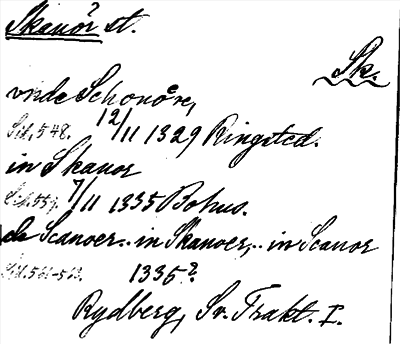 Skanör st.
Sk.
vnde Schonöre,
Sid. 548. 12/11 1329 Ringsted.
in Skanor
Sid. 559. 7/11 1335 Bohus.
de Scanoer.. in Skanoer,.. in Scanor
Sid. 561-562. 1336?
Rydberg, Sv. Trakt. I.